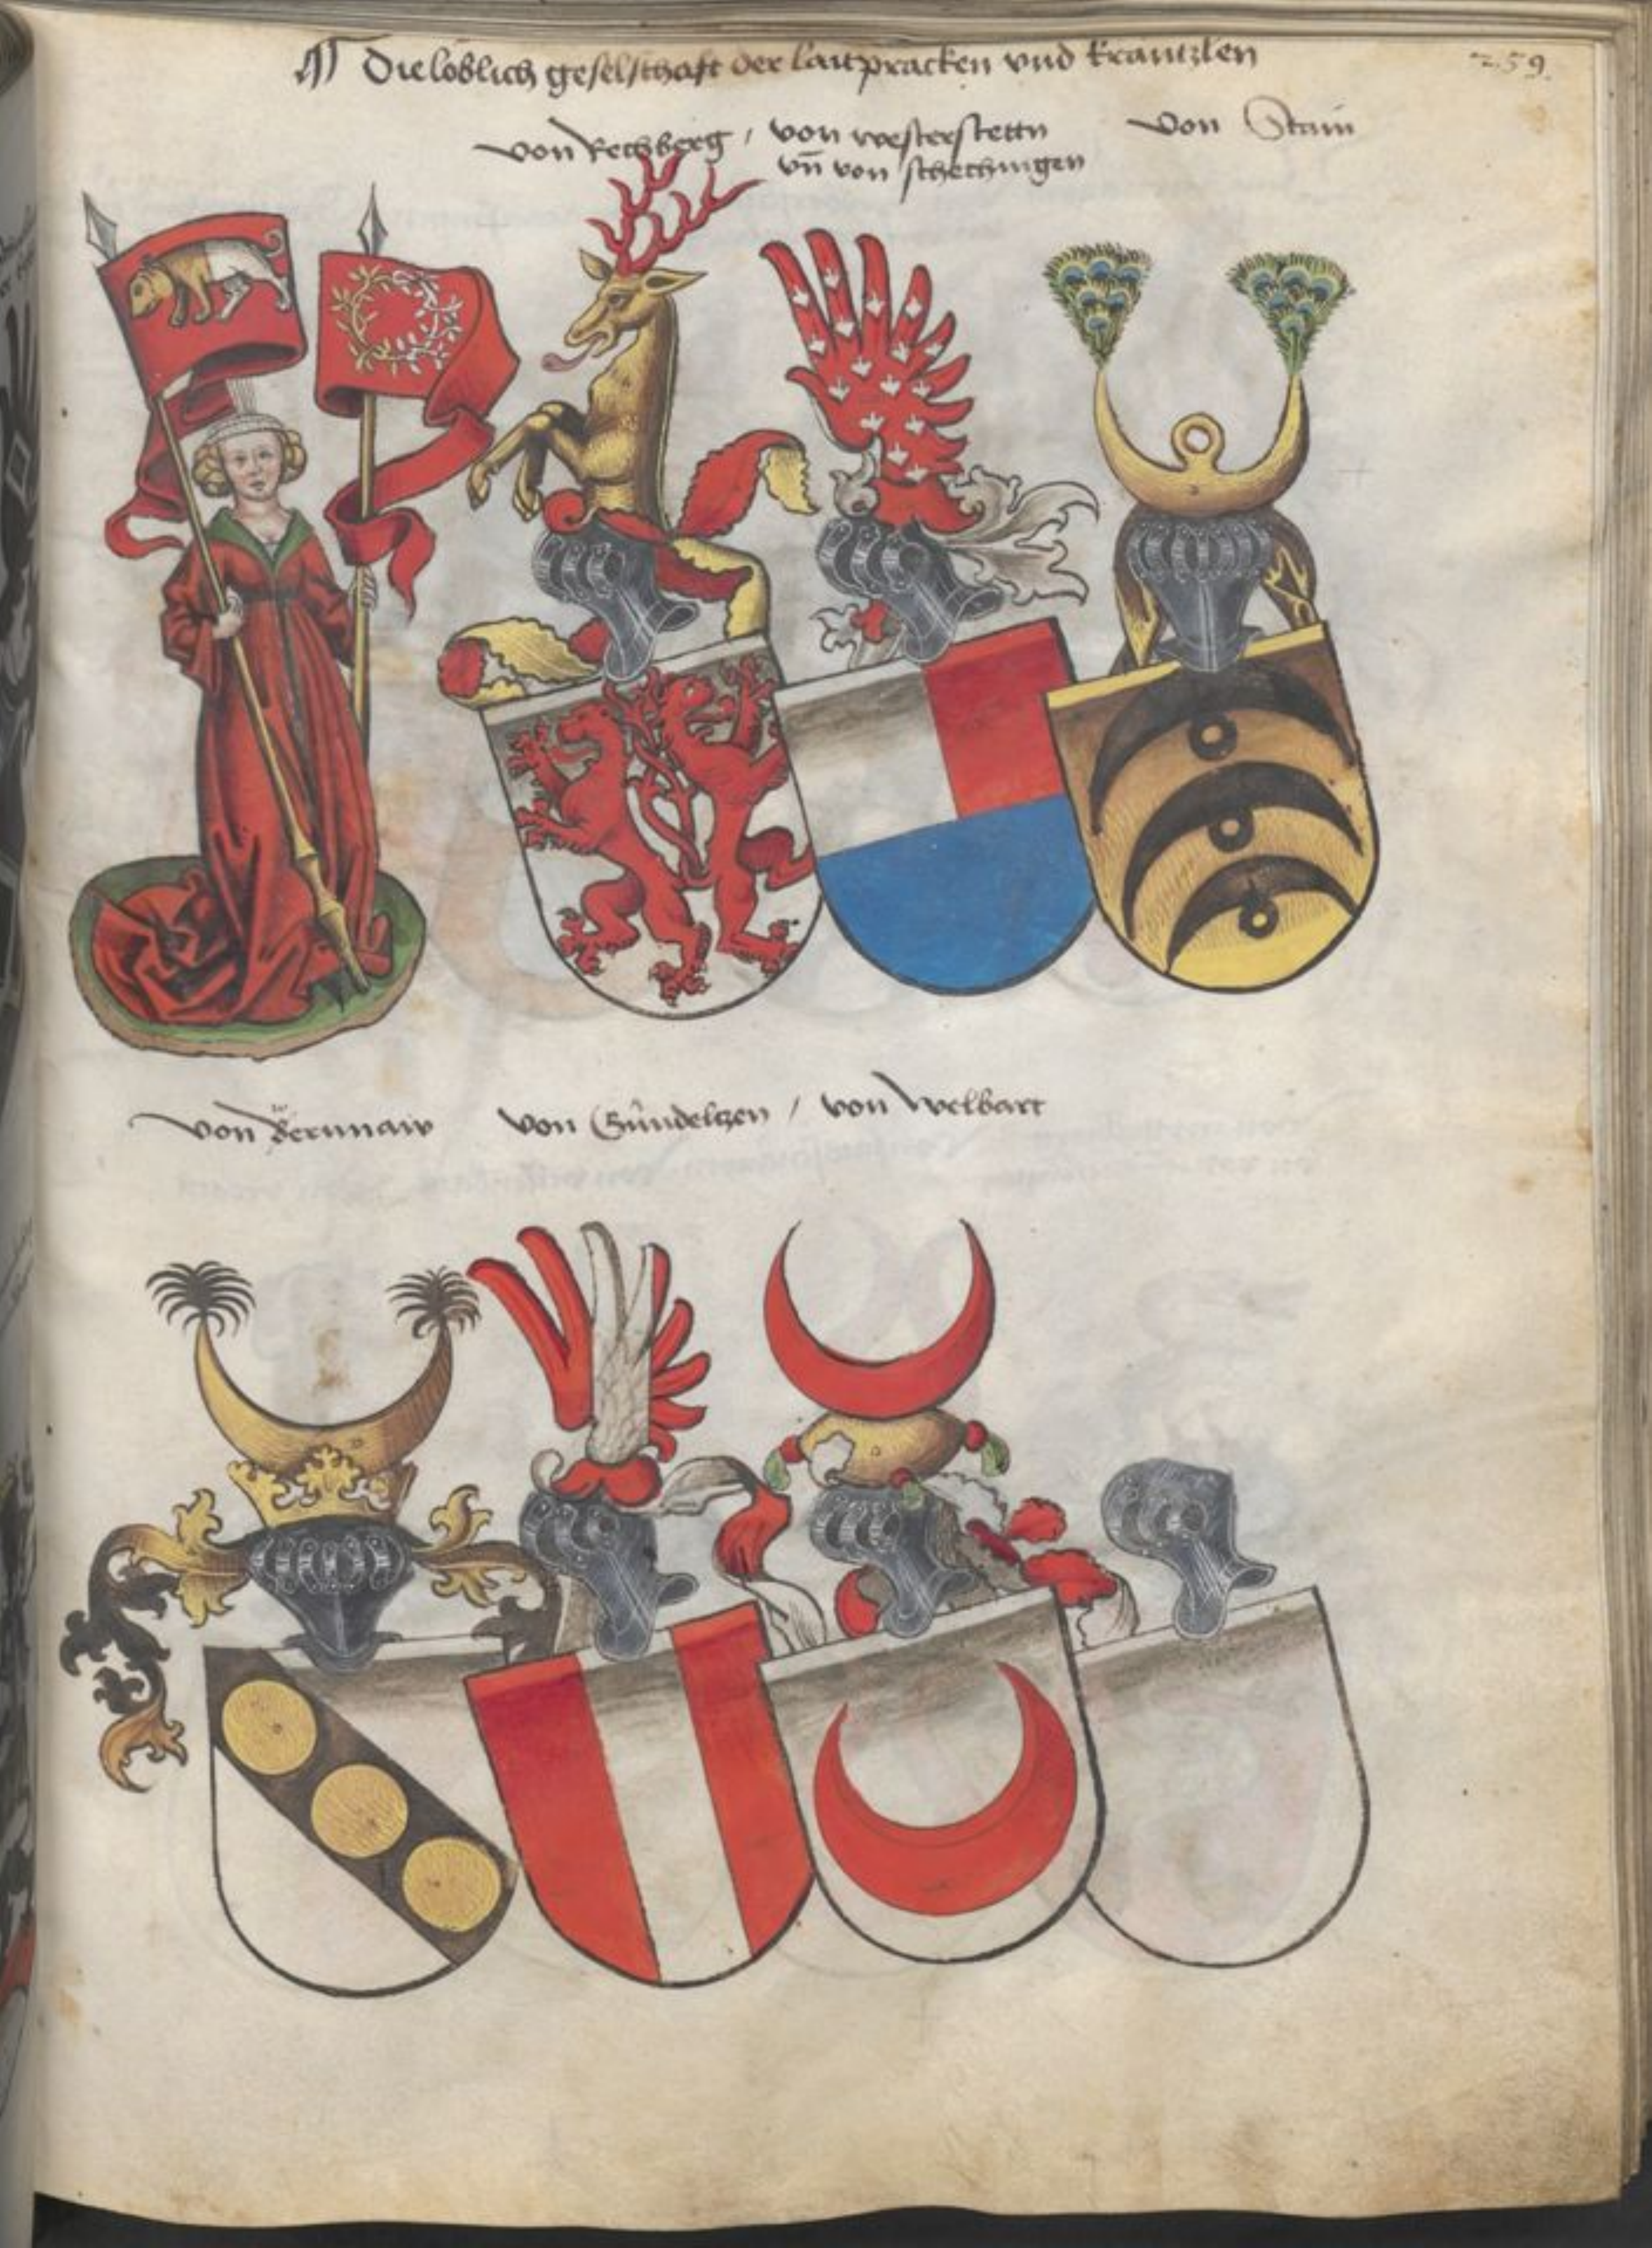 Die loblich geselschaft der laitpracken vnd krantzlen
259.
von Rechberg / von westerstettn von Stain
vn̄ von schechingen
von Bernnaw von Gündelczen / von Welbart